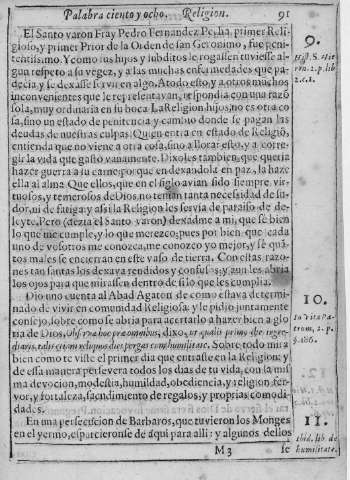 Palabra ciento y ocho. Religion. 91
El Santo varon Fray Pedro Fernandez Pecha, primer Reli-
gioso, y primer Prior de la Orden de san Geronimo, fue peni-
tentissimo. Y como sus hijos y subditos le rogassen tuviesse al-
gun respeto a su vegez, y a las muchas enfermedades que pa-
decia, y se dexasse servir en algo. A todo esto, y a otros muchos
inconvenientes que le representavan, respondia con una razõ
sola, muy ordinaria en su boca. La Religion hijos, no es otra co-
sa, sino un estado de penitencia, y cambio donde se pagan las
deudas de nuestras culpas. Quien entra en estado de Religiõ,
entienda que no viene a otra cosa, sino a llorar esto, y a corre-
gir la vida que gastò vanamente. Dixoles tambien, que queria
hazer guerra a su carne: porque en dexandola en paz, la haze
ella al alma. Que ellos, que en el siglo avian sido siempre vir-
tuosos, y temerosos de Dios, no tenian tanta necessidad de su-
dor, ni de fatiga, y assi la Religion les servia de paraiso de de-
leyte. Pero (dezia el Santo varon) dexadme a mi, que se bien
lo que me cumple, y lo que merezco; pues por bien que cada
uno de vosotros me conozca, me conozco yo mejor, y sè quã-
tos males se encierran en este vaso de tierra. Con estas razo-
nes tan santas los dexava rendidos y confusos; y aun les abria
los ojos para que mirassen dentro de si lo que les cumplia.
Dio una cuenta al Abad Agaton de como estava determi-
nado de vivir en comunidad Religiosa, y le pidiò juntamente
consejo, sobre como se abria para acertarlo a hazer bien a glo-
ria de Dios. dixo, ut qualis primo die
Sobre todo mira
bien como te viste el primer dia que entraste en la Religion; y
de essa manera persevera todos los dias de tu vida, con la mis
ma devocion, modestia, humildad, obediencia, y religion, fer-
vor, y fortaleza, sacudimiento de regalos, y proprias comodi-
dades.
En una persecucion de Barbaros, que tuvieron los Monges
en el yermo, esparcieronse de aqui para alli: y algunos dellos
M 3 se
9.
Hist. S. Hie-
ron. 2. p. lib
2. c. 1.
10.
In Vita Pa-
trum, 2. p.
11.
Ibid. lib. de
humilitate.